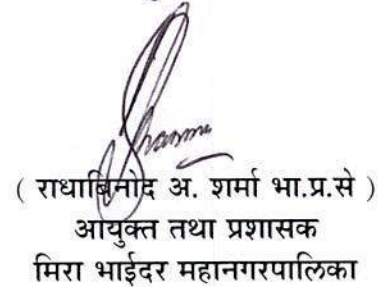 Sharma
( राधाबिनोद अ. शर्मा भा.प्र.से )
आयुक्त तथा प्रशासक
मिरा भाईंदर महानगरपालिका